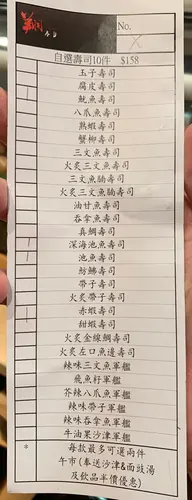 No.
自選壽司10件 $158
玉子壽司
腐皮壽司
魷魚壽司
八爪魚壽司
熟蝦壽司
蟹柳壽司
三文魚壽司
火炙三文魚壽司
三文魚腩壽司
火炙三文魚腩壽司
油甘魚壽司
吞拿魚壽司
真鯛壽司
深海池魚壽司
池魚壽司
魴鮄壽司
帶子壽司
火炙帶子壽司
赤蝦壽司
甜蝦壽司
火炙金線鯛壽司
火炙左口魚邊壽司
辣味三文魚軍艦
飛魚籽軍艦
芥辣八爪魚軍艦
辣味帶子軍艦
辣味吞拿魚軍艦
牛油果沙津軍艦
每款最多可選兩件
午市(奉送沙津&面豉湯
及飲品半價優惠)